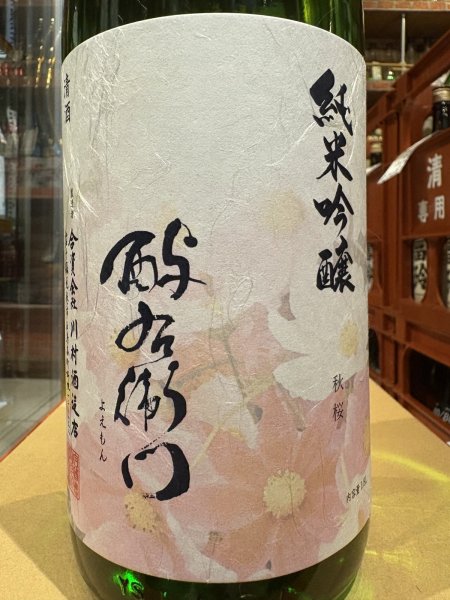 純米吟醸
秋桜
内容量1.8L
酔右衛門
よえもん
清酒
合資会社川村酒造店
清
専用